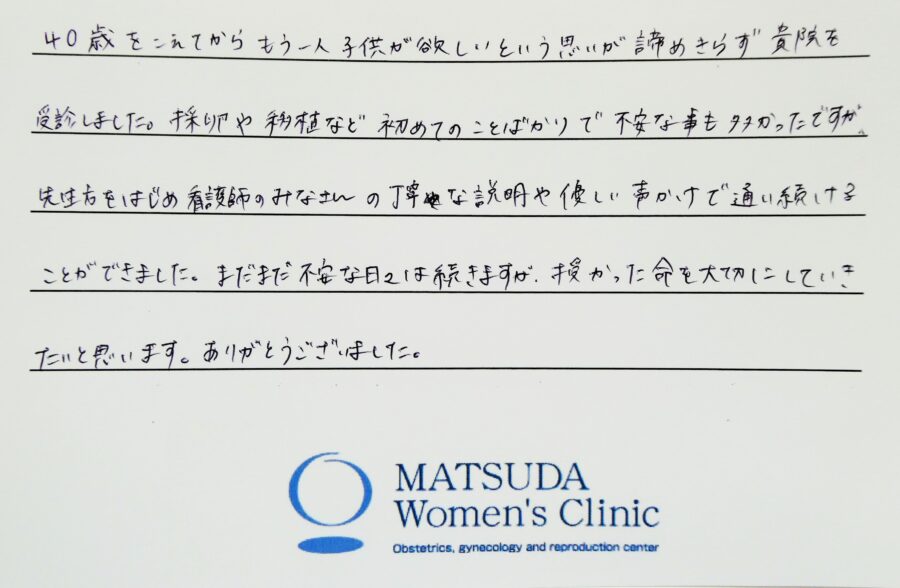 40歳をこえてからもう一人子供が欲しいという思いが諦めきらず貴院を
受診しました。採卵や移植など初めてのことばかりで不安な事も多かったですが、
先生方をはじめ看護師のみなさんの丁寧な説明や優しい声かけで通い続ける
ことができました。まだまだ不安な日々は続きますが、授かった命を大切にしていき
たいと思います。ありがとうございました。
MATSUDA
Women's Clinic
Obstetrics, gynecology and reproduction center